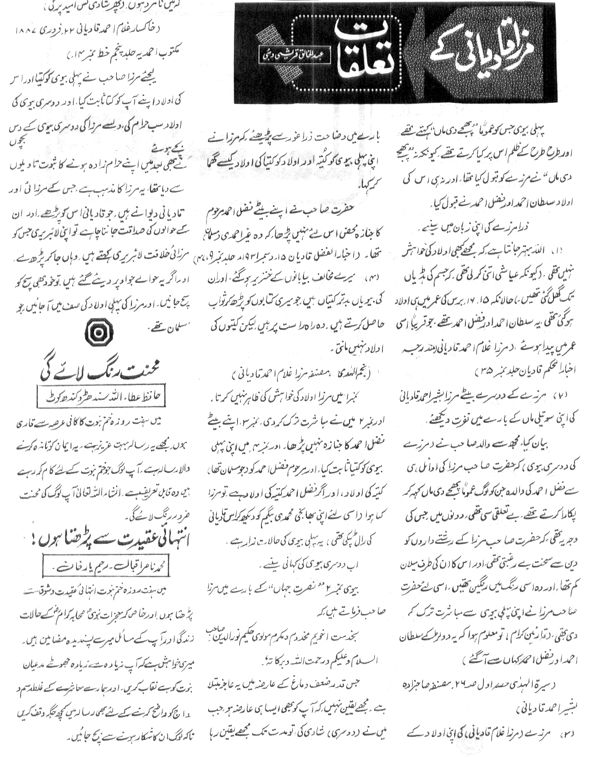 مرزا قادیانی کے
تعلقات
عبدالخالق قریشی دہلی
پہلی بیوی جس کو عموماً "پھجے دی ماں" کہتے تھے
اور طرح طرح کے ظلم اس پر کیا کرتے تھے، کیونکہ نہ "پھجے
دی ماں" نے مرزے کو قبول کیا تھا۔ اور نہ ہی اس کی
اولاد سلطان احمد اور فضل احمد نے قبول کیا۔
ذرا مرزے کی اپنی زبان میں سنیئے۔
(۱) اللہ بہتر جانتا ہے کہ مجھے کبھی اولاد کی خواہش
نہیں تھی، (کیونکہ عیاشی اتنی کر لی تھی، کہ جسم کی ہڈیاں
تک گھل گئی تھیں) حالانکہ ۱۵، ۱۶ برس کی عمر میں ہی اولاد
ہو گئی تھی، یہ سلطان احمد اور فضل احمد تھے، جو قریباً اسی
عمر میں پیدا ہوئے، (مرزا غلام احمد قادیانی مندرجہ
اخبار الحکم قادیان جلد نمبر ۳۵)
(۲) مرزے کے دوسرے بیٹے مرزا بشیر احمد قادیانی
کی اپنی سوتیلی ماں کے بارے میں نفرت دیکھئے۔
بیان کیا، مجھ سے والدہ صاحب نے (مرزے
کی دوسری بیوی) کہ حضرت صاحب مرزا کی اوائل ہی
سے فضل احمد کی والدہ جن کو لوگ عموماً پھجے دی ماں کہہ کر
پکارا کرتے تھے، بے تعلقی سی تھی،
وجہ یہ تھی، کہ حضرت صاحب مرزا کے رشتے داروں کو
دین سے سخت بے رغبتی تھی، اور اس کا ان کی طرف میلان
کم تھا، اور وہ اسی رنگ میں رنگین تھیں، اسی لئے حضرت
صاحب مرزا نے اپنی پہلی بیوی سے مباشرت ترک کر
دی تھی، (قارئین کرام، تو معلوم ہوا کہ یہ دو لڑکے سلطان
احمد اور فضل احمد کہاں سے آگئے)
(سیرۃ المہدی حصہ اول ص ۲۶، مصنفہ صاحبزادہ
بشیر احمد قادیانی)
(۳) مرزے (مرزا غلام قادیانی) کی اپنی اولاد کے
بارے میں وضاحت ذرا غور سے پڑھیئے، کہ مرزا نے
اپنی پہلی بیوی کو کتیا اور اولاد کو کتیا کی اولاد کیسے گھما
کر کہا۔
حضرت صاحب نے اپنے بیٹے فضل احمد مرحوم
کا جنازہ محض اس لئے نہیں پڑھا، کہ وہ غیر احمدی (مسلمان)
تھا۔ (اخبار الفضل قادیان ۱۵، دسمبر ۱۹۲۱ء جلد نمبر ۹
(۴) میرے مخالف بیابانوں کے خنزیر ہو گئے، اور ان
کی بیویاں بدتر کتیاں ہیں، جو میری کتابوں کو پڑھ کر ثواب
حاصل کرتے ہیں، وہ راہ راست پر ہیں، لیکن کتیوں کی
اولاد نہیں مانتی۔
مصنفہ مرزا غلام احمد قادیانی)
نمبر ۱ میں مرزا اولاد کی خواہش ہی ظاہر نہیں کرتا۔
اور نمبر ۲ میں نے مباشرت ترک کر دی، نمبر ۳ اپنے بیٹے
فضل احمد کا جنازہ نہیں پڑھا۔ اور نمبر ۴ میں اپنی پہلی
بیوی کو کتیا ثابت کیا، اور مرحوم فضل احمد کو (جو مسلمان تھا)
کتیہ کی اولاد، اور اگر فضل احمد کتیہ کی اولاد ہے تو مرزا
کیا ہوا؟ اسی لئے اپنی بھانجی محمدی بیگم کو دیکھ کر اس قادیانی
کی رال ٹپکی تھی، یہ پہلی بیوی کی حالت زار ہے۔
اب دوسری کی کہانی سنیئے۔
بیوی نمبر ۲ "نصرت جہاں" کے بارے میں مرزا
صاحب فرماتے ہیں کہ
بخدمت اخویم مخدوم و مکرم مولوی حکیم نور الدین صاحب
السلام و علیکم و رحمت اللہ و برکاتہ!
جس قدر ضعف دماغ کے عارضہ میں یہ عاجز مبتلا
ہے۔ مجھے یقین نہیں، کہ آپ کو بھی ایسا ہی عارضہ ہو، جب
میں نے (دوسری) شادی کی، تو مدت تک مجھے یقین رہا
(خاکسار غلام احمد قادیانی ۲۲، فروری ۱۸۸۷
مکتوب احمدیہ جلد پنجم خط نمبر ۱۴)
لیجئے مرزا صاحب نے پہلی بیوی کو کتیا اور اس
کی اولاد اپنے آپ کو کتا ثابت کیا۔ اور دوسری بیوی کی
اولاد سب حرام کی، ویسے مرزا کی دوسری بیوی کے دس
بچوں
نے بھی بعد میں اپنے حرام زادہ ہونے کا ثبوت تا دیلوں
سے دیا تھا، یہ مرزا کا مذہب ہے، جس کے مرزائی اور
قادیانی دیوانے ہیں، جو قادیانی اس کو پڑھے، اور ان
کے حوالوں کی صداقت جاننا چاہے تو اپنی لائبریری جس کو
مرزائی خلافت لائبریری کہتے ہیں، وہاں جا کر پڑھ لے۔
اور اگر یہ حوالے جو اوپر دیئے گئے ہیں، تو خود بھی سچ کو
سچ جانیں، اور مرزا کی پہلی اولاد کی صف میں آجائیں، جو
مسلمان تھے۔
محنت رنگ لائے گی
حافظ عطاء اللہ سندھڑ کندھ کوٹ
میں ہفت روزہ ختم نبوت کا کافی عرصہ سے قاری
ہوں، مجھے یہ رسالہ بہت عزیز ہے، یہ ایمان کو تازہ کرنے
والا رسالہ ہے، آپ لوگ جو ختم نبوت کے لئے کام کر رہے
ہیں وہ قابل تعریف ہے، انشاء اللہ تعالیٰ آپ لوگ کی محنت
ضرور رنگ لائے گی۔
انتہائی عقیدت سے پڑھتا ہوں!
محمد ناصر اقبال، رحیم یار خان۔
میں ہفت روزہ ختم نبوت انتہائی عقیدت و شوق سے
پڑھتا ہوں، اور خاص کر معجزات نبوی صحابہ کرام کے حالات
زندگی اور آپ کے مسائل میرے پسندیدہ مضامین ہیں۔
میری خواہش ہے کہ آپ زیادہ سے زیادہ جھوٹے مدعیان
نبوت کو بے نقاب کریں، اور ہمارے معاشرے کے غلط رسم و
رواج کو واضح کرنے کے لئے بھی رسالہ میں کچھ جگہ وقف کریں
تاکہ لوگ ان کا شکار ہونے سے بچ جائیں۔